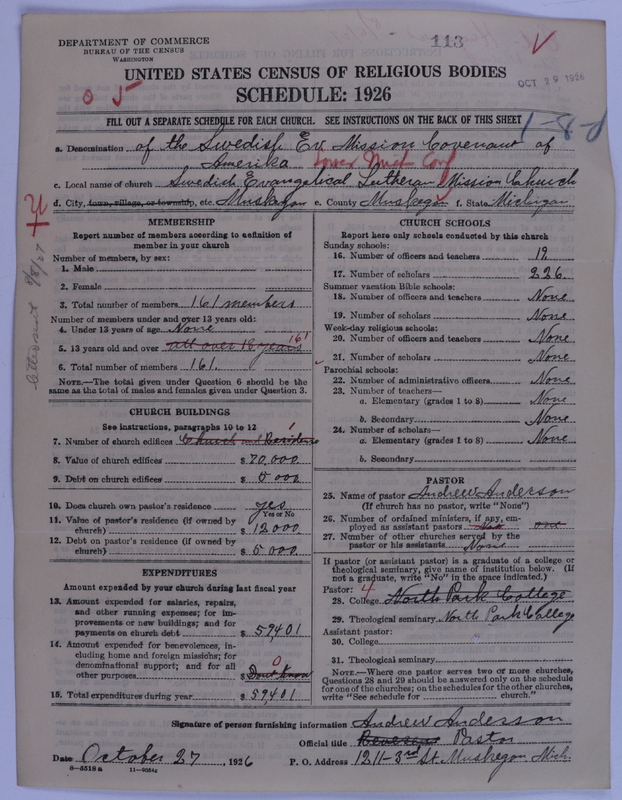 DEPARTMENT OF COMMERCE
BUREAU OF THE CENSUS
WASHINGTON
113
OCT 29 1926
UNITED STATES CENSUS OF RELIGIOUS BODIES
SCHEDULE: 1926
0 5
FILL OUT A SEPARATE SCHEDULE FOR EACH CHURCH. SEE INSTRUCTIONS ON THE BACK OF THIS SHEET
1-8-
a. Denomination of the Swedish Ev Mission Covenant of
Amerika
c. Local name of church Swedish Evangelical Lutheran Mission Church
d. City, town, village, or township, etc. Muskegon e. County Muskegon f. State Michigan
MEMBERSHIP
Report number of members according to definition of
member in your church
Number of members, by sex:
1. Male
2. Female
3. Total number of members 161 members
Number of members under and over 13 years old:
4. Under 13 years of age None
5. 13 years old and over all over 18 years 161
6. Total number of members 161.
NOTE.—The total given under Question 6 should be the
same as the total of males and females given under Question 3.
CHURCH BUILDINGS
See instructions, paragraphs 10 to 12
7. Number of church edifices Church and Residence 1
8. Value of church edifices $ 20,000
9. Debt on church edifices $ 5 000
10. Does church own pastor's residence yes
Yes or No
11. Value of pastor's residence (if owned by
church) $ 12000.
12. Debt on pastor's residence (if owned by
church) $ 5 000.
EXPENDITURES
Amount expended by your church during last fiscal year
13. Amount expended for salaries, repairs,
and other running expenses; for im-
provements or new buildings; and for
payments on church debt $ 59401
14. Amount expended for benevolences, in-
cluding home and foreign missions; for
denominational support; and for all
other purposes $ Dont Know 0
15. Total expenditures during year $ 59401
CHURCH SCHOOLS
Report here only schools conducted by this church
Sunday schools:
16. Number of officers and teachers 19
17. Number of scholars 226.
Summer vacation Bible schools:
18. Number of officers and teachers None
19. Number of scholars None
Week-day religious schools:
20. Number of officers and teachers None
21. Number of scholars None
Parochial schools:
22. Number of administrative officers None
23. Number of teachers—
a. Elementary (grades 1 to 8) None
b. Secondary None
24. Number of scholars—
a. Elementary (grades 1 to 8) None
b. Secondary
PASTOR
25. Name of pastor Andrew Anderson
(If church has no pastor, write "None")
26. Number of ordained ministers, if any, em-
ployed as assistant pastors one
27. Number of other churches served by the
pastor or his assistants None
If pastor (or assistant pastor) is a graduate of a college or
theological seminary, give name of institution below. (If
not a graduate, write "No" in the space indicated.)
Pastor:
28. College North Park College
29. Theological seminary North Park College
Assistant pastor:
30. College
31. Theological seminary
NOTE.—Where one pastor serves two or more churches,
Questions 28 and 29 should be answered only on the schedule
for one of the churches; on the schedules for the other churches,
write "See schedule for church."
Signature of person furnishing information Andrew Anderson
Official title Reverend Pastor
Date October 27, 1926 P. O. Address 1211-3rd St. Muskegon Mich.
8—5518a 11—9054